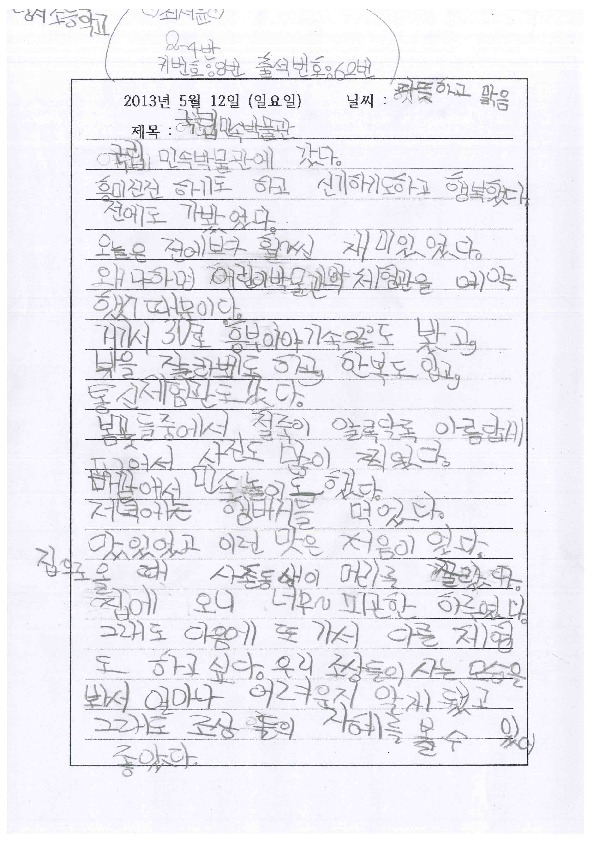 2-4반
키번호:8번 출석번호:62번
2013년 5월 12일 (일요일) 날씨 : 따뜻하고 맑음
제목 : 국립민속박물관
국립 민속박물관에 갔다.
흥미진진 하기도 하고 신기하기도하고 행복했다.
전에도 가봤었다.
오늘은 전에보다 훨씬 재미있었다.
왜냐하면 어린이박물관과 체험관을 예약
했기 때문이다.
거기서 3D로 흥부이야기속으로도 봤고,
한복도 입고,
통신체험관도 갔다.
봄꽃들중에서 철쭉이 알록달록 아름답게
사진도 많이 찍었다.
바깥에선 민속놀이도 했다.
저녁에는 햄버거를 먹었다.
맛있었고 이런 맛은 처음이었다.
집으로올 때 사촌동생이 머리를
집에 오니 너무~ 피곤한 하루였다.
그래도 다음에 또 가서 다른 체험
도 하고 싶다. 우리 조상들의 사는 모습을
봐서 얼마나 어려운지 알게 됐고
그래도 조상 들의 지혜를 볼 수 있어
좋았다.